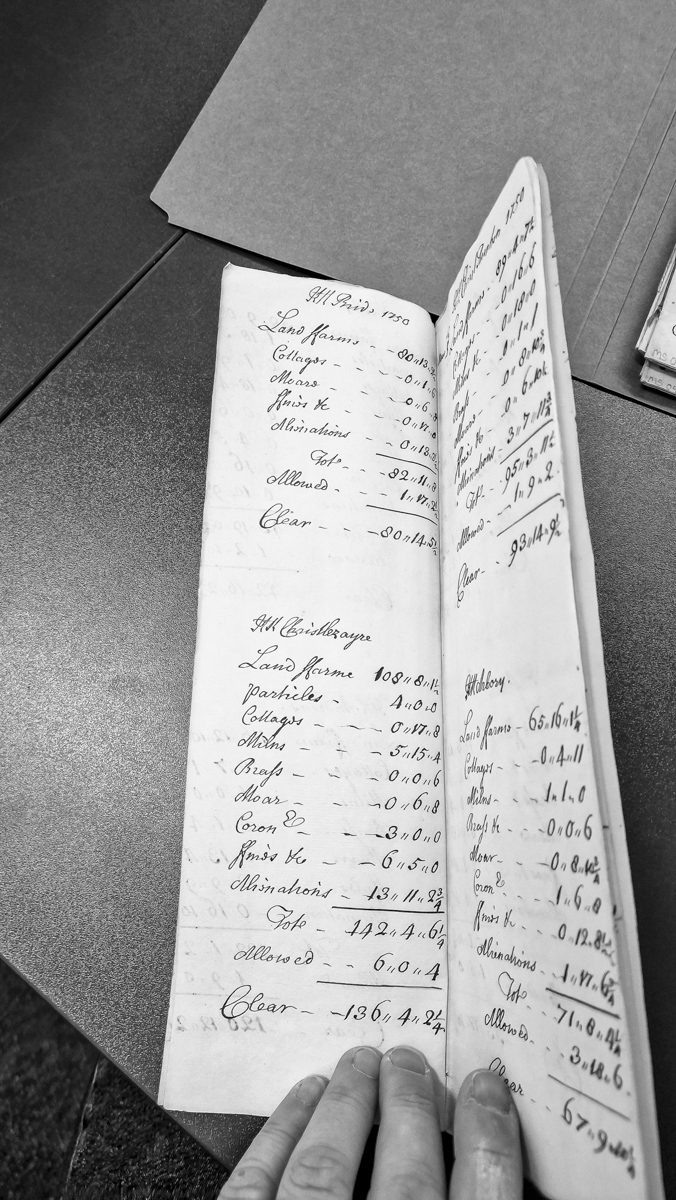 KK Bride 1750
Land ffarms - - 80"13"
Cottages - - - 0"1"
Moars - - - 0"6"8
ffines &c - - - 0"17"
Alienations - - 0"13"
Tot - - - 82"11"
Allowed - - - 1"17"
Clear - - - 80"14"5½
KK Christlezayre
Land ffarme 108"8"1½
particles - 4"0"0
Cottages - - - 0"17"8
Milns - - - 5"15"4
Brass - - - 0"0"6
Moar - - - 0"6"8
Coron E - - - 3"0"0
ffines &c - - 6"5"0
Alienations - 13"11"2¾
Tot - 142"4"6¼
Allowed - - 6"0"4
Clear - - 136"4"2¼
1750
Land ffarms - 89"4"7½
Cottages - 0"16"6
Milns &c - 0"18"0
Brass - - 0"1"1
Moars - - 0"8"10¾
ffines &c - 0"6"10½
Alienations - 3"7"11¾
Tot - 95"3"11½
Allowed - - 1"9"2
Clear - - 93"14"9½
KK Arbory.
Land ffarms - 65"16"1¼
Cottages - - 0"4"11
Milns - - - 1"1"0
Brass &c - - 0"0"6
Moar - - - 0"8"10¾
Coron E - - 1"6"8
ffines &c - - 0"12"8½
Alienations - - 1"17"6¾
Tot - - 71"8"4¼
Allowed - - 3"18"6
Clear - - 67"9"10¼